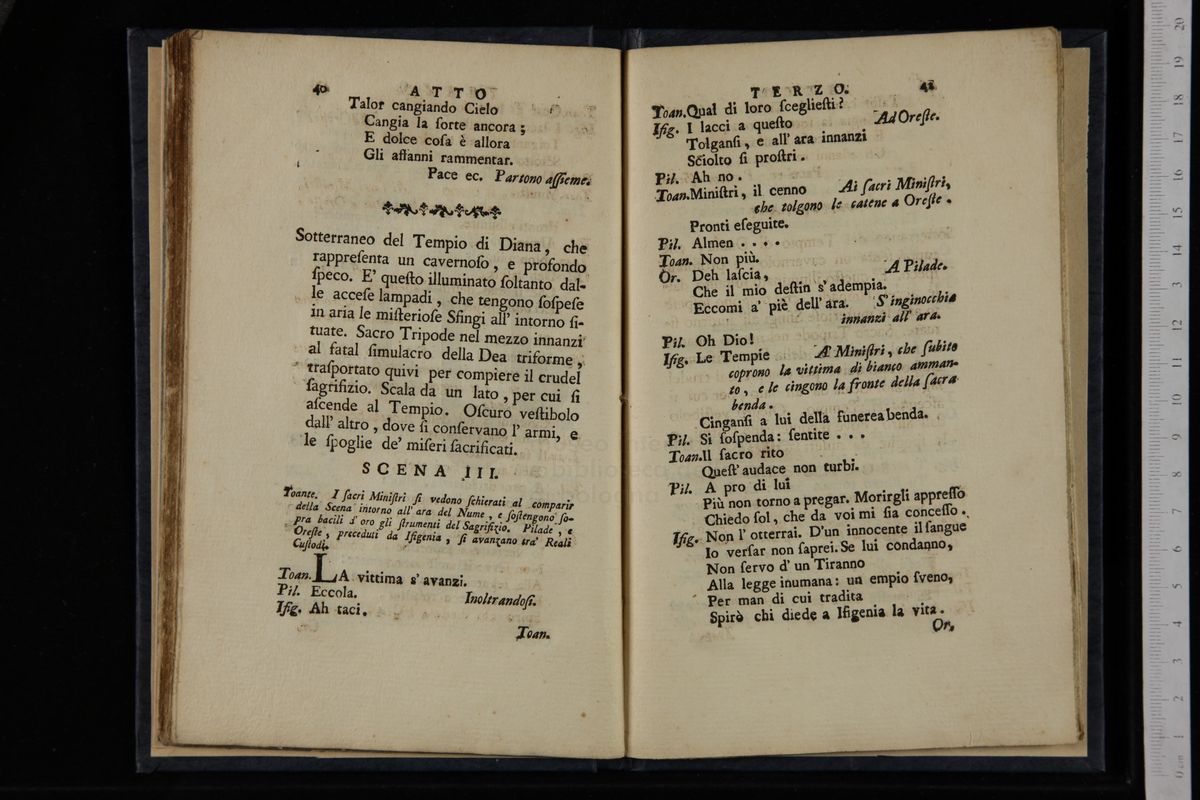 40 ATTO
Talor cangiando Cielo
Cangia la ſorte ancora;
E dolce coſa è allora
Gli affanni rammentar.
Pace ec. Partono aſſieme.
Sotterraneo del Tempio di Diana, che
rappreſenta un cavernoſo, e profondo
ſpeco. E' queſto illuminato ſoltanto dal-
le acceſe lampadi, che tengono ſoſpeſe
in aria le miſterioſe Sfingi all' intorno ſi-
tuate. Sacro Tripode nel mezzo innanzi
al fatal ſimulacro della Dea triforme,
traſportato quivi per compiere il crudel
ſagrifizio. Scala da un lato, per cui ſi
aſcende al Tempio. Oſcuro veſtibolo
dall' altro, dove ſi conſervano l' armi, e
le ſpoglie de' miſeri ſacrificati.
SCENA III.
Toante. I ſacri Miniſtri ſi vedono ſchierati al comparir
della Scena intorno all' ara del Nume, e ſoſtengono ſo-
pra bacili d' oro gli ſtrumenti del Sagrifizio. Pilade, e
Oreſte, preceduti da Ifigenia, ſi avanzano tra' Reali
Cuſtodi.
Toan. LA vittima s' avanzi.
Pil. Eccola. Inoltrandoſi.
Ifig. Ah taci.
Toan.
TERZO. 41
Toan. Qual di loro ſceglieſti?
Ifig. I lacci a queſto Ad Oreſte.
Tolganſi, e all' ara innanzi
Sciolto ſi proſtri.
Pil. Ah no.
Toan. Miniſtri, il cenno Ai ſacri Miniſtri,
che tolgono le catene a Oreſte.
Pronti eſeguite.
Pil. Almen . . . .
Toan. Non più.
Or. Deh laſcia, A Pilade.
Che il mio deſtin s' adempia.
Eccomi a' piè dell' ara. S' inginocchia
innanzi all' ara.
Pil. Oh Dio!
Ifig. Le Tempie A' Miniſtri, che ſubito
coprono la vittima di bianco amman-
to, e le cingono la fronte della ſacra
benda.
Cinganſi a lui della funerea benda.
Pil. Si ſoſpenda: ſentite . . .
Toan. Il ſacro rito
Queſt' audace non turbi.
Pil. A pro di lui
Più non torno a pregar. Morirgli appreſſo
Chiedo ſol, che da voi mi ſia conceſſo.
Ifig. Non l' otterrai. D'un innocente il ſangue
Io verſar non ſaprei. Se lui condanno,
Non ſervo d' un Tiranno
Alla legge inumana: un empio ſveno,
Per man di cui tradita
Spirò chi diede a Ifigenia la vita.
Or.